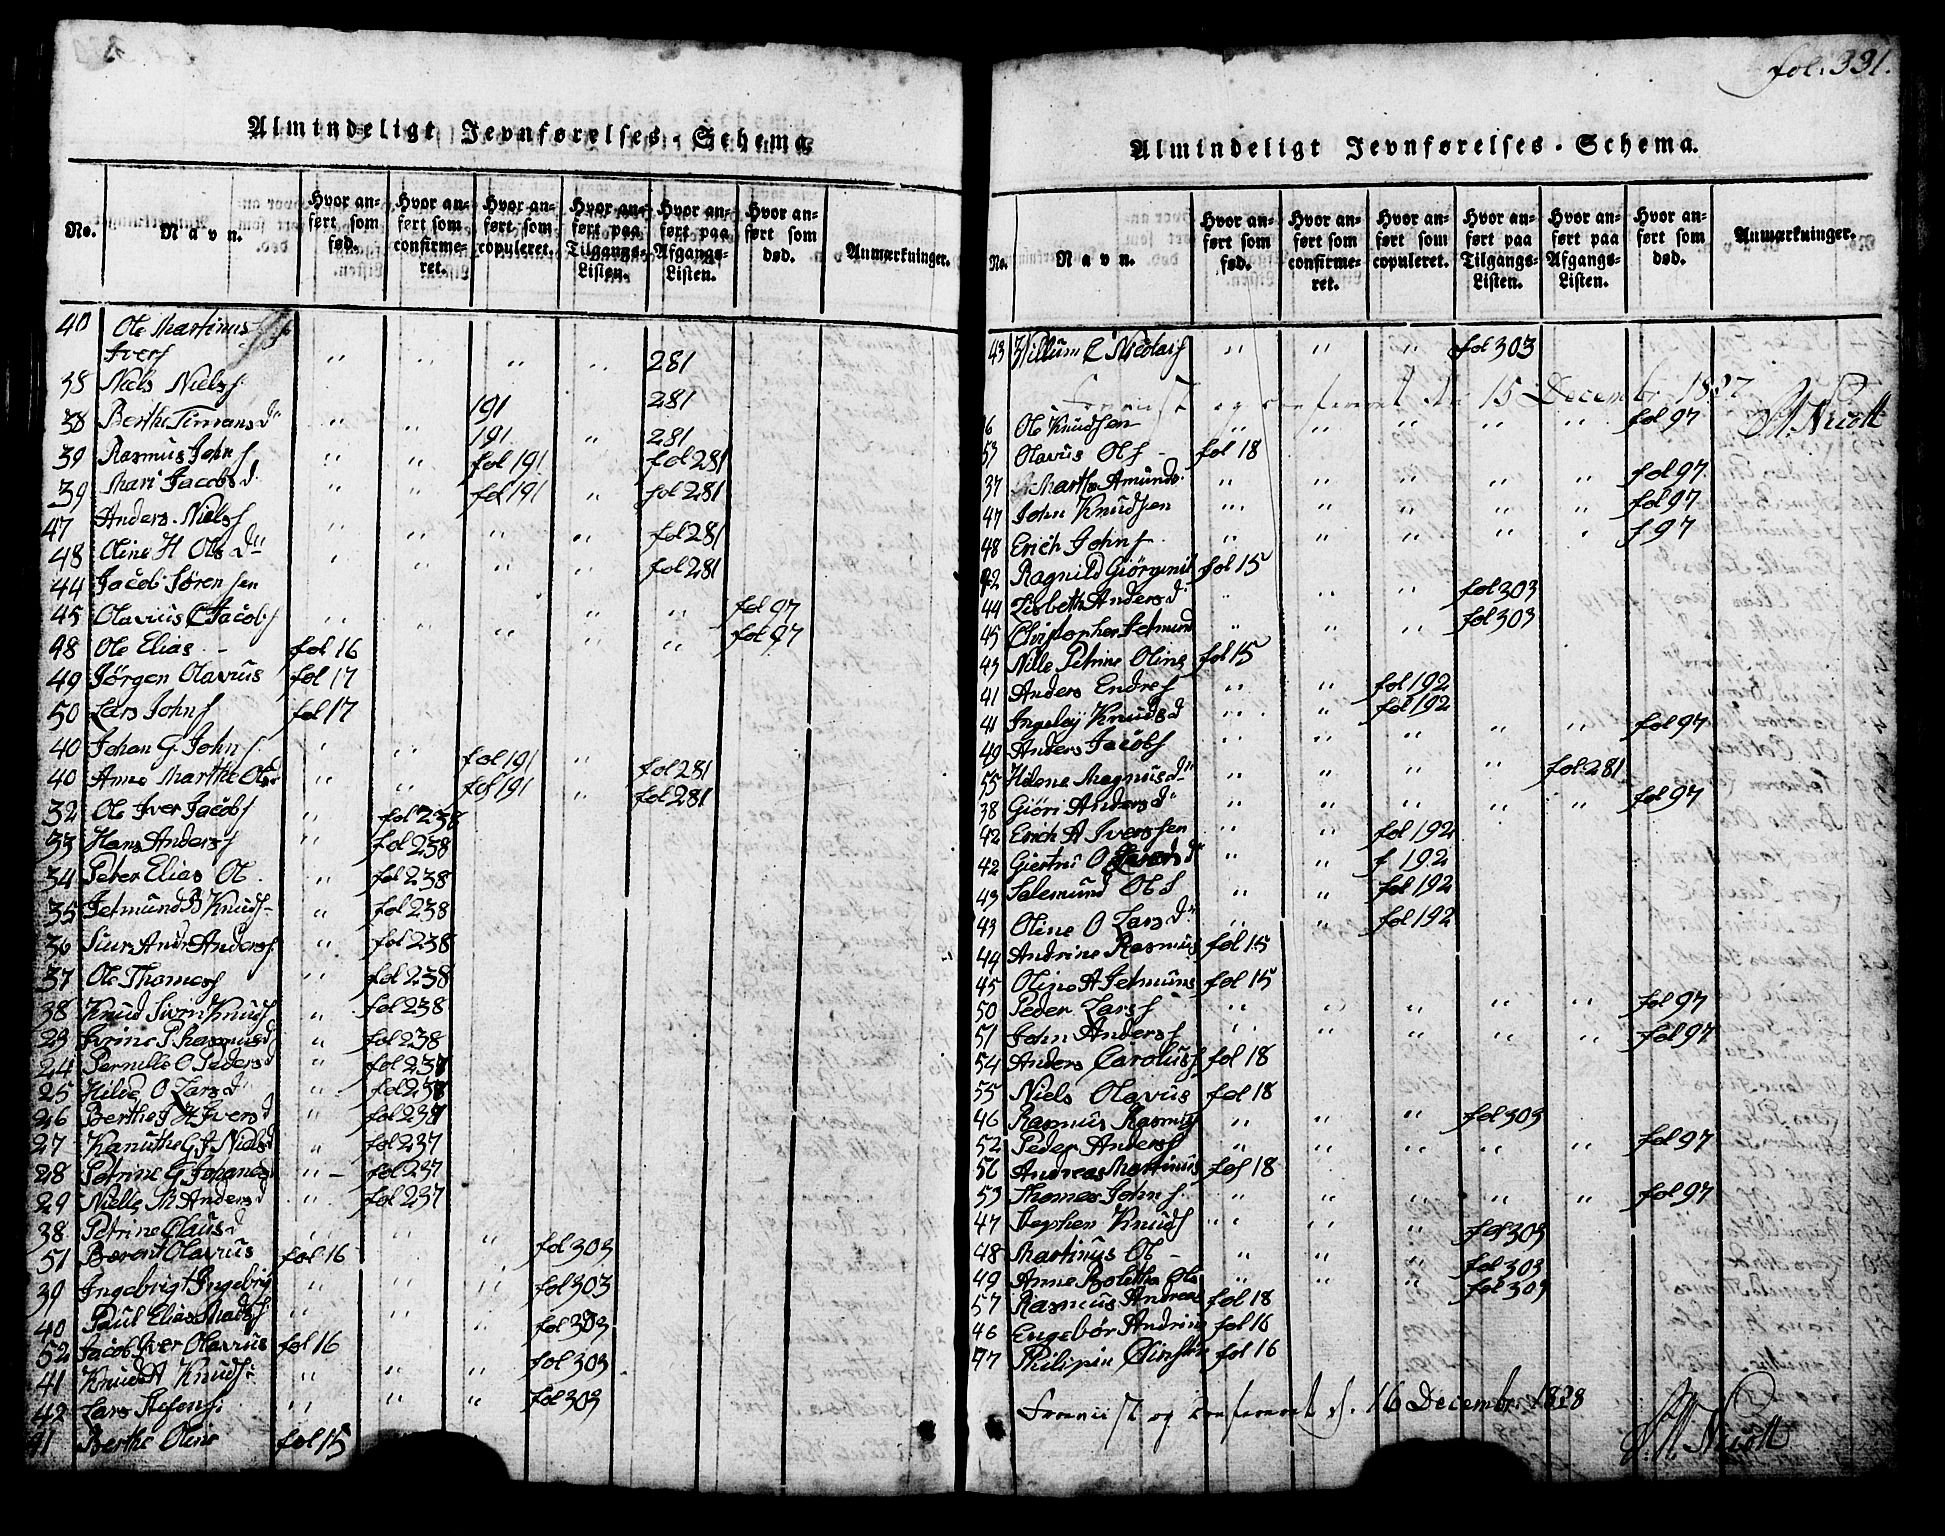 Almindeligt Jevnførelses-Schema
No.
Navn.
Hvor anført som fød.
Hvor anført som confirmeret.
Hvor anført som copuleret.
Hvor anført paa Tilgangs-Listen.
Hvor anført paa Afgangs-Listen.
Hvor anført som død.
Anmærkninger.
40 Ole Martinus
Ivers " " " " 281
38 Niels Niels 191 281
38 Berthe d 191 " 281
39 Rasmus Johns " " fol 191 fol 281
39 Mari Jacobs d " " fol 191 " fol 281
47 Anders Niels " " " " fol 281
48 Oline H Ols d " " " " fol 281
44 Jacob Sørensen " " fol 97
45 Olavius C Jacobs " " " " " fol 97
48 Ole Elias fol 16
49 Jørgen Olavius fol 17
50 Lars Johns fol 17
40 Johan G. Johns " " fol 191 " fol 281
40 Anne Marthe Ols d " " fol 191 " fol 281
32 Ole Iver Jacobs " fol 238
33 Hans Anders " fol 238
34 Peter Elias Ols " fol 238
35 Jetmund B Knuds " fol 238
36 Siur Andr Anders " fol 238
37 Ole Thomas " fol 238
38 Knud Knuds " fol 238
23 P Rasmus d " fol 238
24 Pernille O Peders d " fol 238
25 Hilde O Lars d " fol 238
26 Berthe Ivers d " fol 237
27 Kanuthe G J Niels d " fol 237
28 Petrine G Johannes " fol 237
29 Nielle M Anders d " fol 237
38 Petrine Claus d " " " fol 303
51 Berent Olavius fol 16
39 Ingebrigt Ingebrig " " " fol 303
40 Paul Elias Mads " " " fol 303
52 Jacob Iver Olavius fol 16
41 Knud A Knuds " " " fol 303
42 Lars Stefens " " " fol 303
41 Berthe Oline fol 15
fol. 331.
Almindeligt Jevnførelses-Schema.
No.
Navn.
Hvor anført som fød.
Hvor anført som confirmeret.
Hvor anført som copuleret.
Hvor anført paa Tilgangs-Listen.
Hvor anført paa Afgangs-Listen.
Hvor anført som død.
Anmærkninger.
43 Willum C Nicolais " " " fol 303
og confereret 15 December 1827
Ole Knudsen " " " " " fol 97
53 Olavus Ols fol 18
37 Marthe Amunds " " " " " fol 97
47 John Knudsen " " " " " fol 97
48 Erich Johns " " " " " f 97
42 Ragnild fol 15
44 Lisbeth Anders d " " " fol 303
45 Christopher Jetmund " " " fol 303
43 Nille Petrine Oline fol 15
41 Anders Endres " " fol 192
41 Ingebor Knuds d " " fol 192
49 Anders Jacobs " " " " " fol 97
55 Helene Magnus d " " " " fol 281
38 Giøri Anders d " " " " " fol 97
42 Erich A Iverssen " " fol 192
42 Giertru O d " " f 192
43 Salemund Ols " " fol 192
43 Oline O Lars d " " fol 192
44 Andrine Rasmus fol 15
45 Oline A Jetmuns fol 15
50 Peder Lars " " " " " fol 97
51 John Anders " " " " " fol 97
54 Anders Carolus fol 18
55 Niels Olavus fol 18
46 Rasmus Rasmus " " " fol 303
52 Peder Anders " " " " " fol 97
56 Andreas Martinus fol 18
53 Thomas Johns " " " " " fol 97
47 Stephen Knuds " " " fol 303
48 Martinus Ols " " " fol 303
49 Anne Bolethe Ols " " " fol 303
57 Rasmus Andreas fol 18
46 Engebør Andrine fol 16
47 fol 16
og conferert d. 16 December 1828